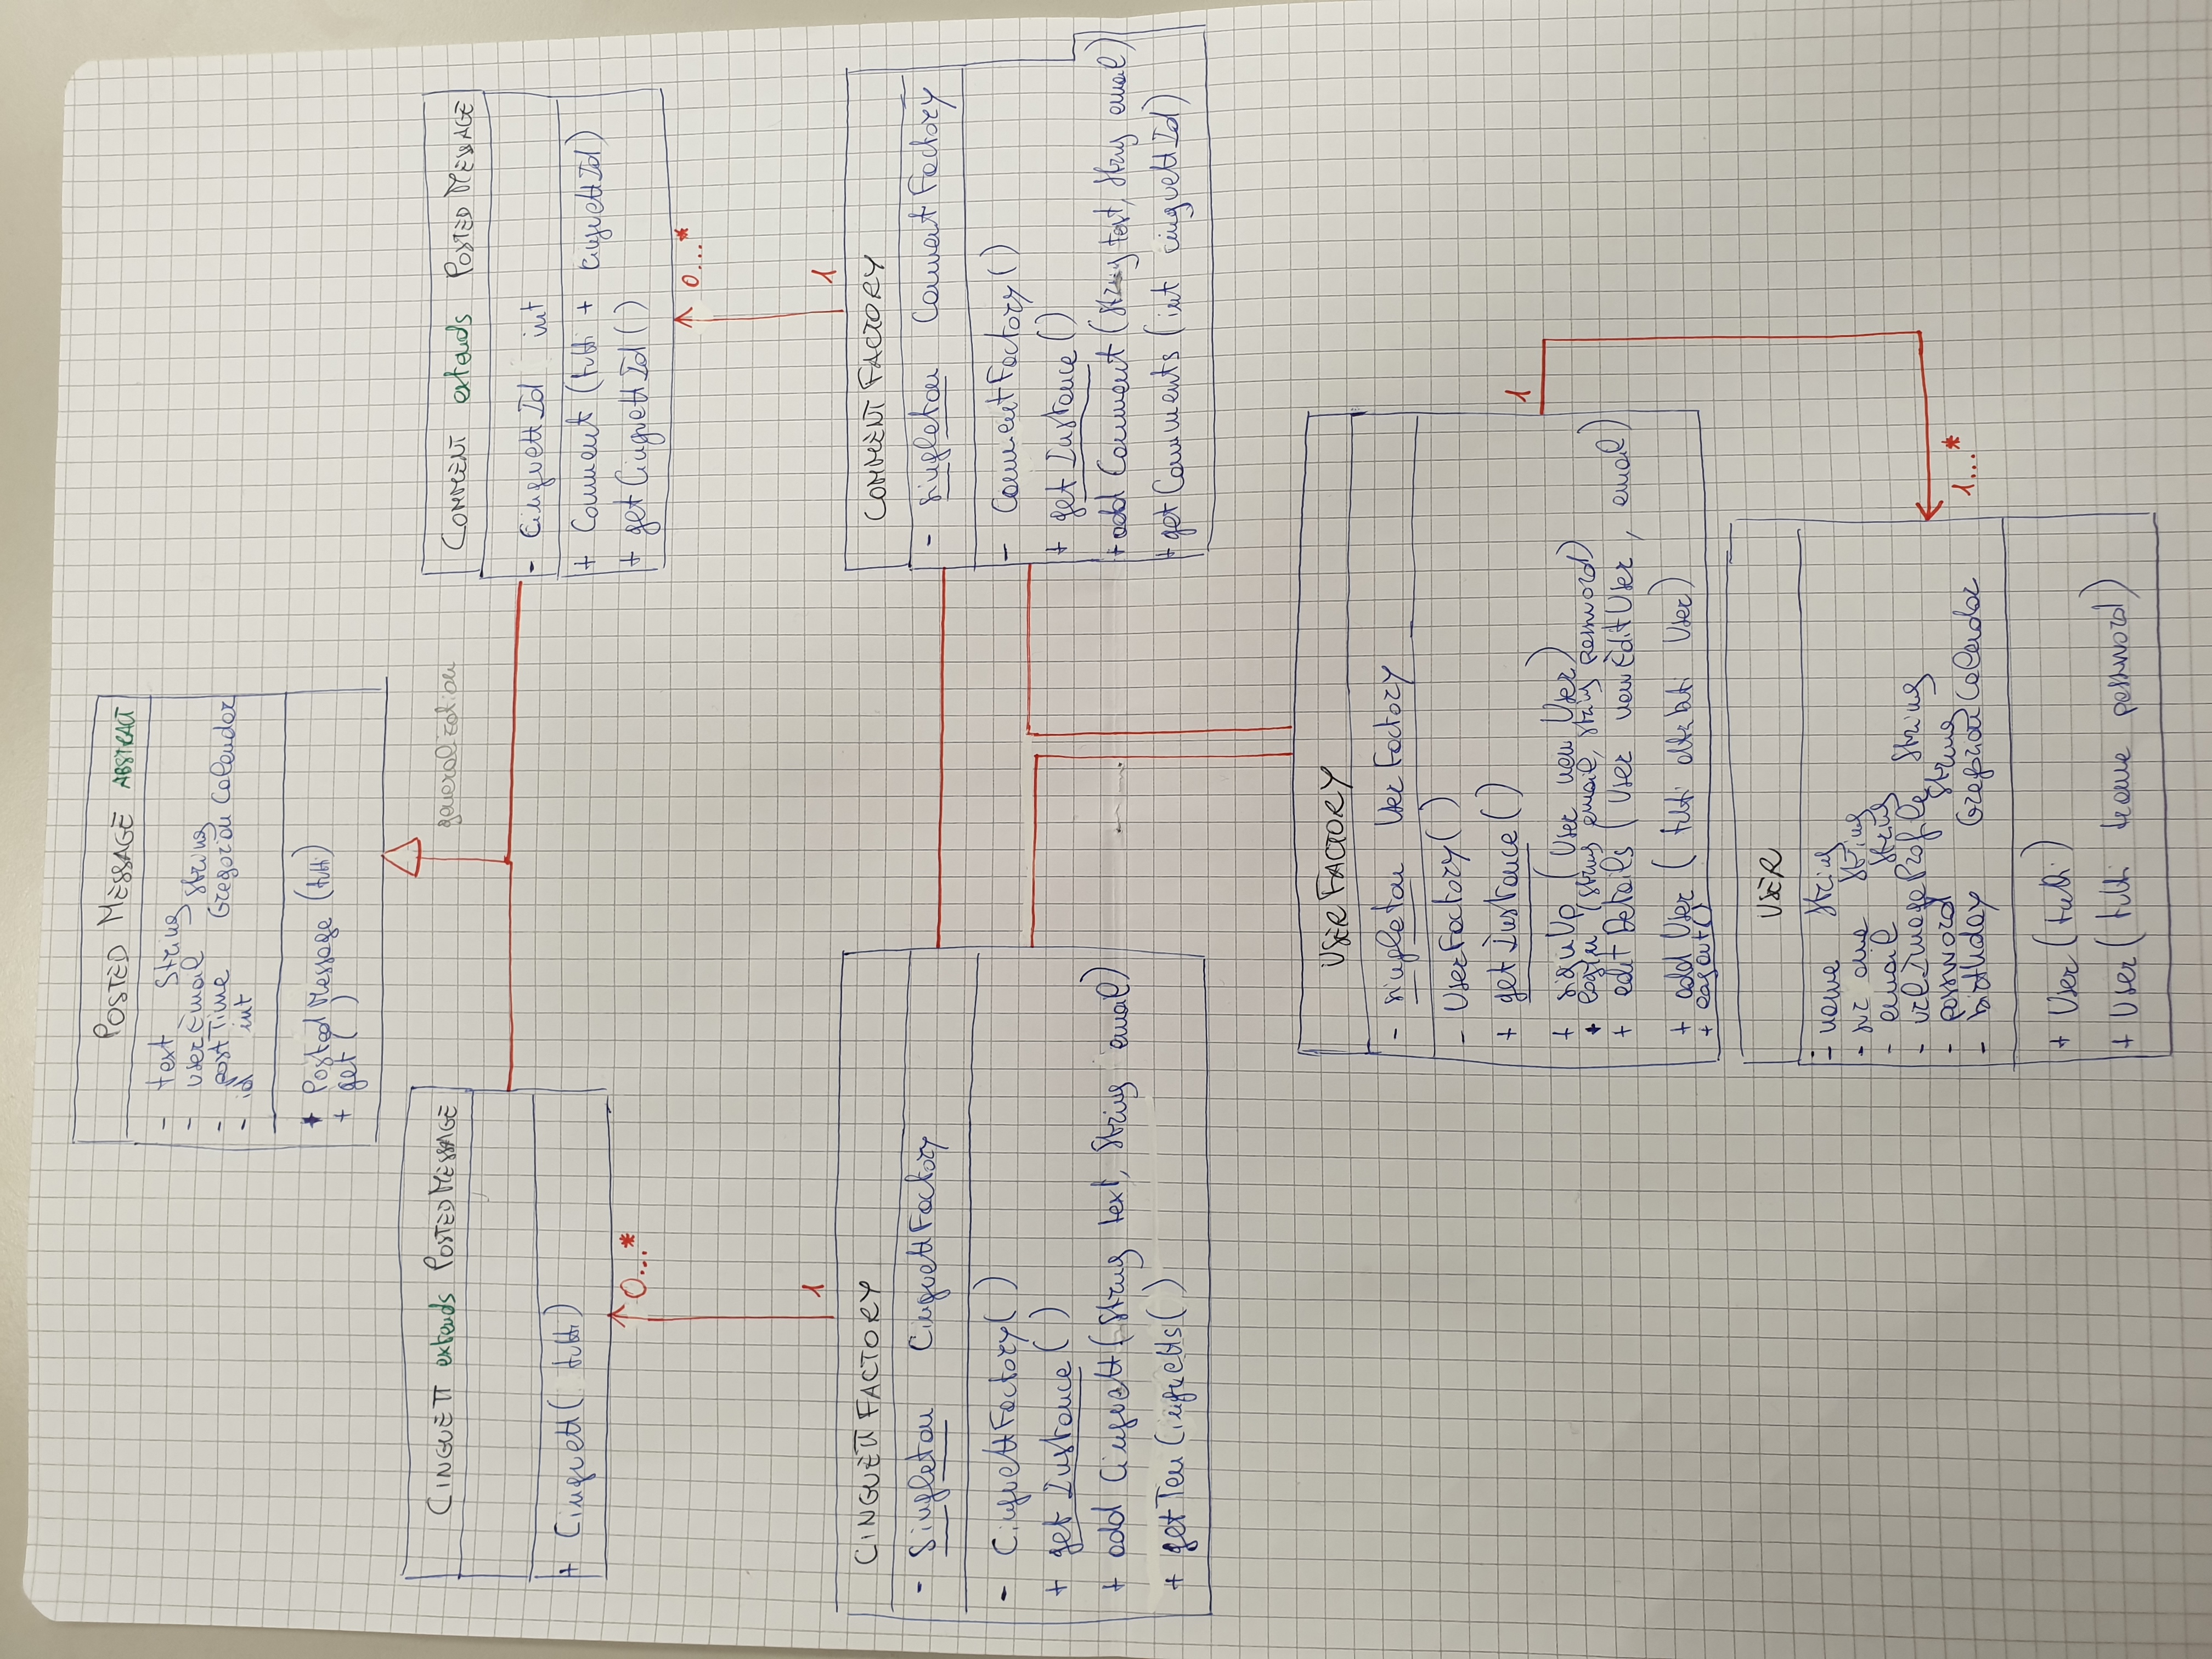 POSTED MESSAGE ABSTRACT
- text String
- userEmail String
- postTime GregorianCalendar
- id int
+ PostedMessage (tutti)
+ get( )
CINGUETT extends POSTEDMESSAGE
+ Cinguett( tutti)
generalization
COMMENT extends POSTED MESSAGE
- CinguettId int
+ Comment (tutti + cinguettId)
+ getCinguettId()
0...*
1
0...*
1
CINGUETTFACTORY
- Singleton CinguettFactory
- CinguettFactory( )
+ getInstance( )
+ add Cinguett(String text, String email)
+ getTenCinguetts( )
COMMENT FACTORY
- singleton CommentFactory
- CommentFactory()
+ getInstance()
+ add Comment (String text, String email)
+ getComments (int cinguettId)
USER FACTORY
- singleton UserFactory
- UserFactory( )
+ getInstance( )
+ signUp (User newUser)
+ login (String email, String password)
+ editDetails (User newEditUser, email)
+ add User ( tutti attributi User)
+ logout()
1
1...*
USER
- name String
- email String
- urlImageProfile String
- password String
- birthday GregorianCalendar
+ User (tutti)
+ User (tutti tranne password)